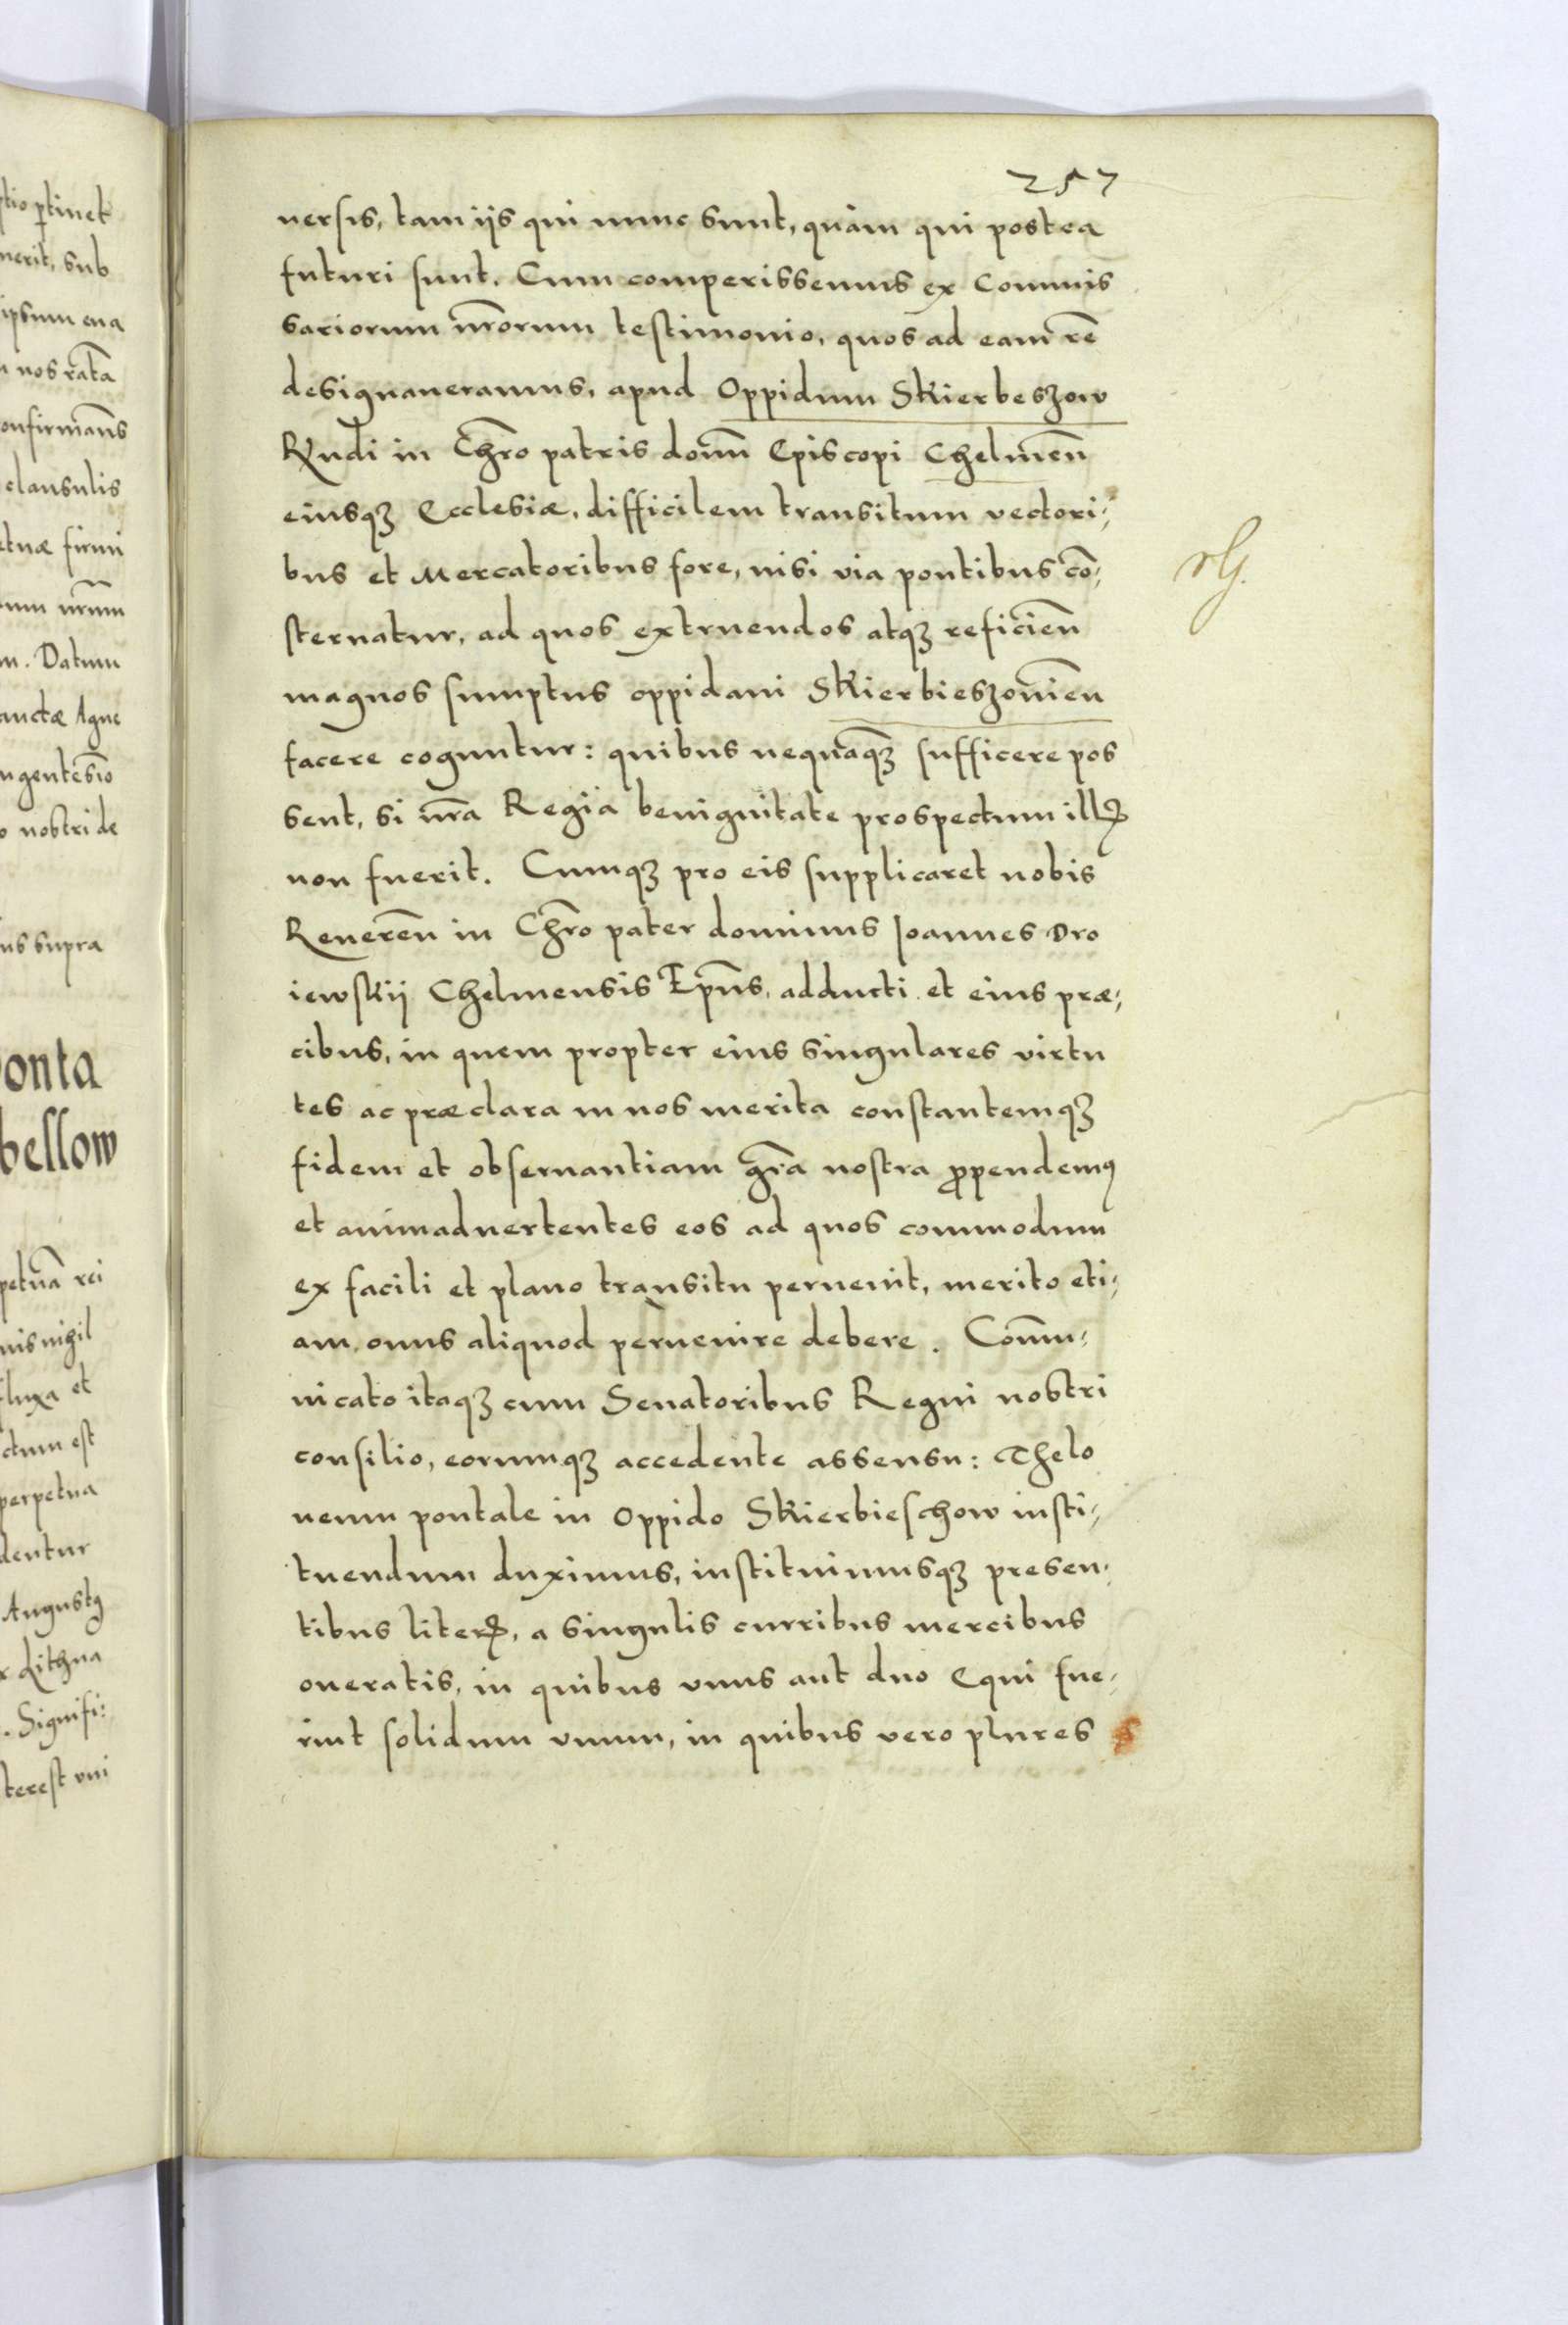 257
uersis, tam ijs qui nunc sunt, quàm qui postea
futuri sunt. Cum comperissemus ex Commis
sariorum nr̃orum testimonio, quos ad eam rē
designaueramus, apud Oppidum Skierbeszow
Rn̄di in Chr̃o patris domn̄ Episcopi Chelmen̄
eiusqȝ Ecclesiæ, difficilem transitum vectori⸗
bus et Mercatoribus fore, nisi via pontibus cō⸗
sternatur, ad quos extruendos atqȝ reficien̄
magnos sumptus oppidani Skierbieszouien̄
facere coguntur: quibus nequaqȝ sufficere pos
sent, si nr̃a Regia benignitate prospectum illꝭ
non fuerit. Cumqȝ pro eis supplicaret nobis
Reueren̄ in Chr̃o pater dominus Joannes Dro
iewskij Chelmensis Epn̄s, adducti et eius præ⸗
cibus, in quem propter eius singulares virtu
tes ac præclara in nos merita constantemqȝ
fidem et obseruantiam gr̃a nostra ꝓpendemꝰ
et animaduertentes eos ad quos commodum
ex facili et plano transitu peruenit, merito eti⸗
am onus aliquod peruenire debere. Com̄u⸗
nicato itaqȝ cum Senatoribus Regni nostri
consilio, eorumqȝ accedente assensu: Thelo
neum pontale in Oppido Skierbieschow insti⸗
tuendum duximus, instituimusqȝ presen⸗
tibus literꝭ, a singulis curribus mercibus
oneratis, in quibus vnus aut duo Equi fue⸗
rint solidum vnum, in quibus vero plures
tio ꝑtinet
nerit, sub
ipsum eua
nos ratā
onfirmān̄s
clausulis
etuæ firmi
um nr̄um
m. Datum
anctæ Agne
ngentesīo
o nostri de
us supra
onta
bellow
petuā rei
nis nihil
fluxa et
ctum est
perpetua
dentur
Augustꝰ
x Lithua
. Signifi:
terest vni